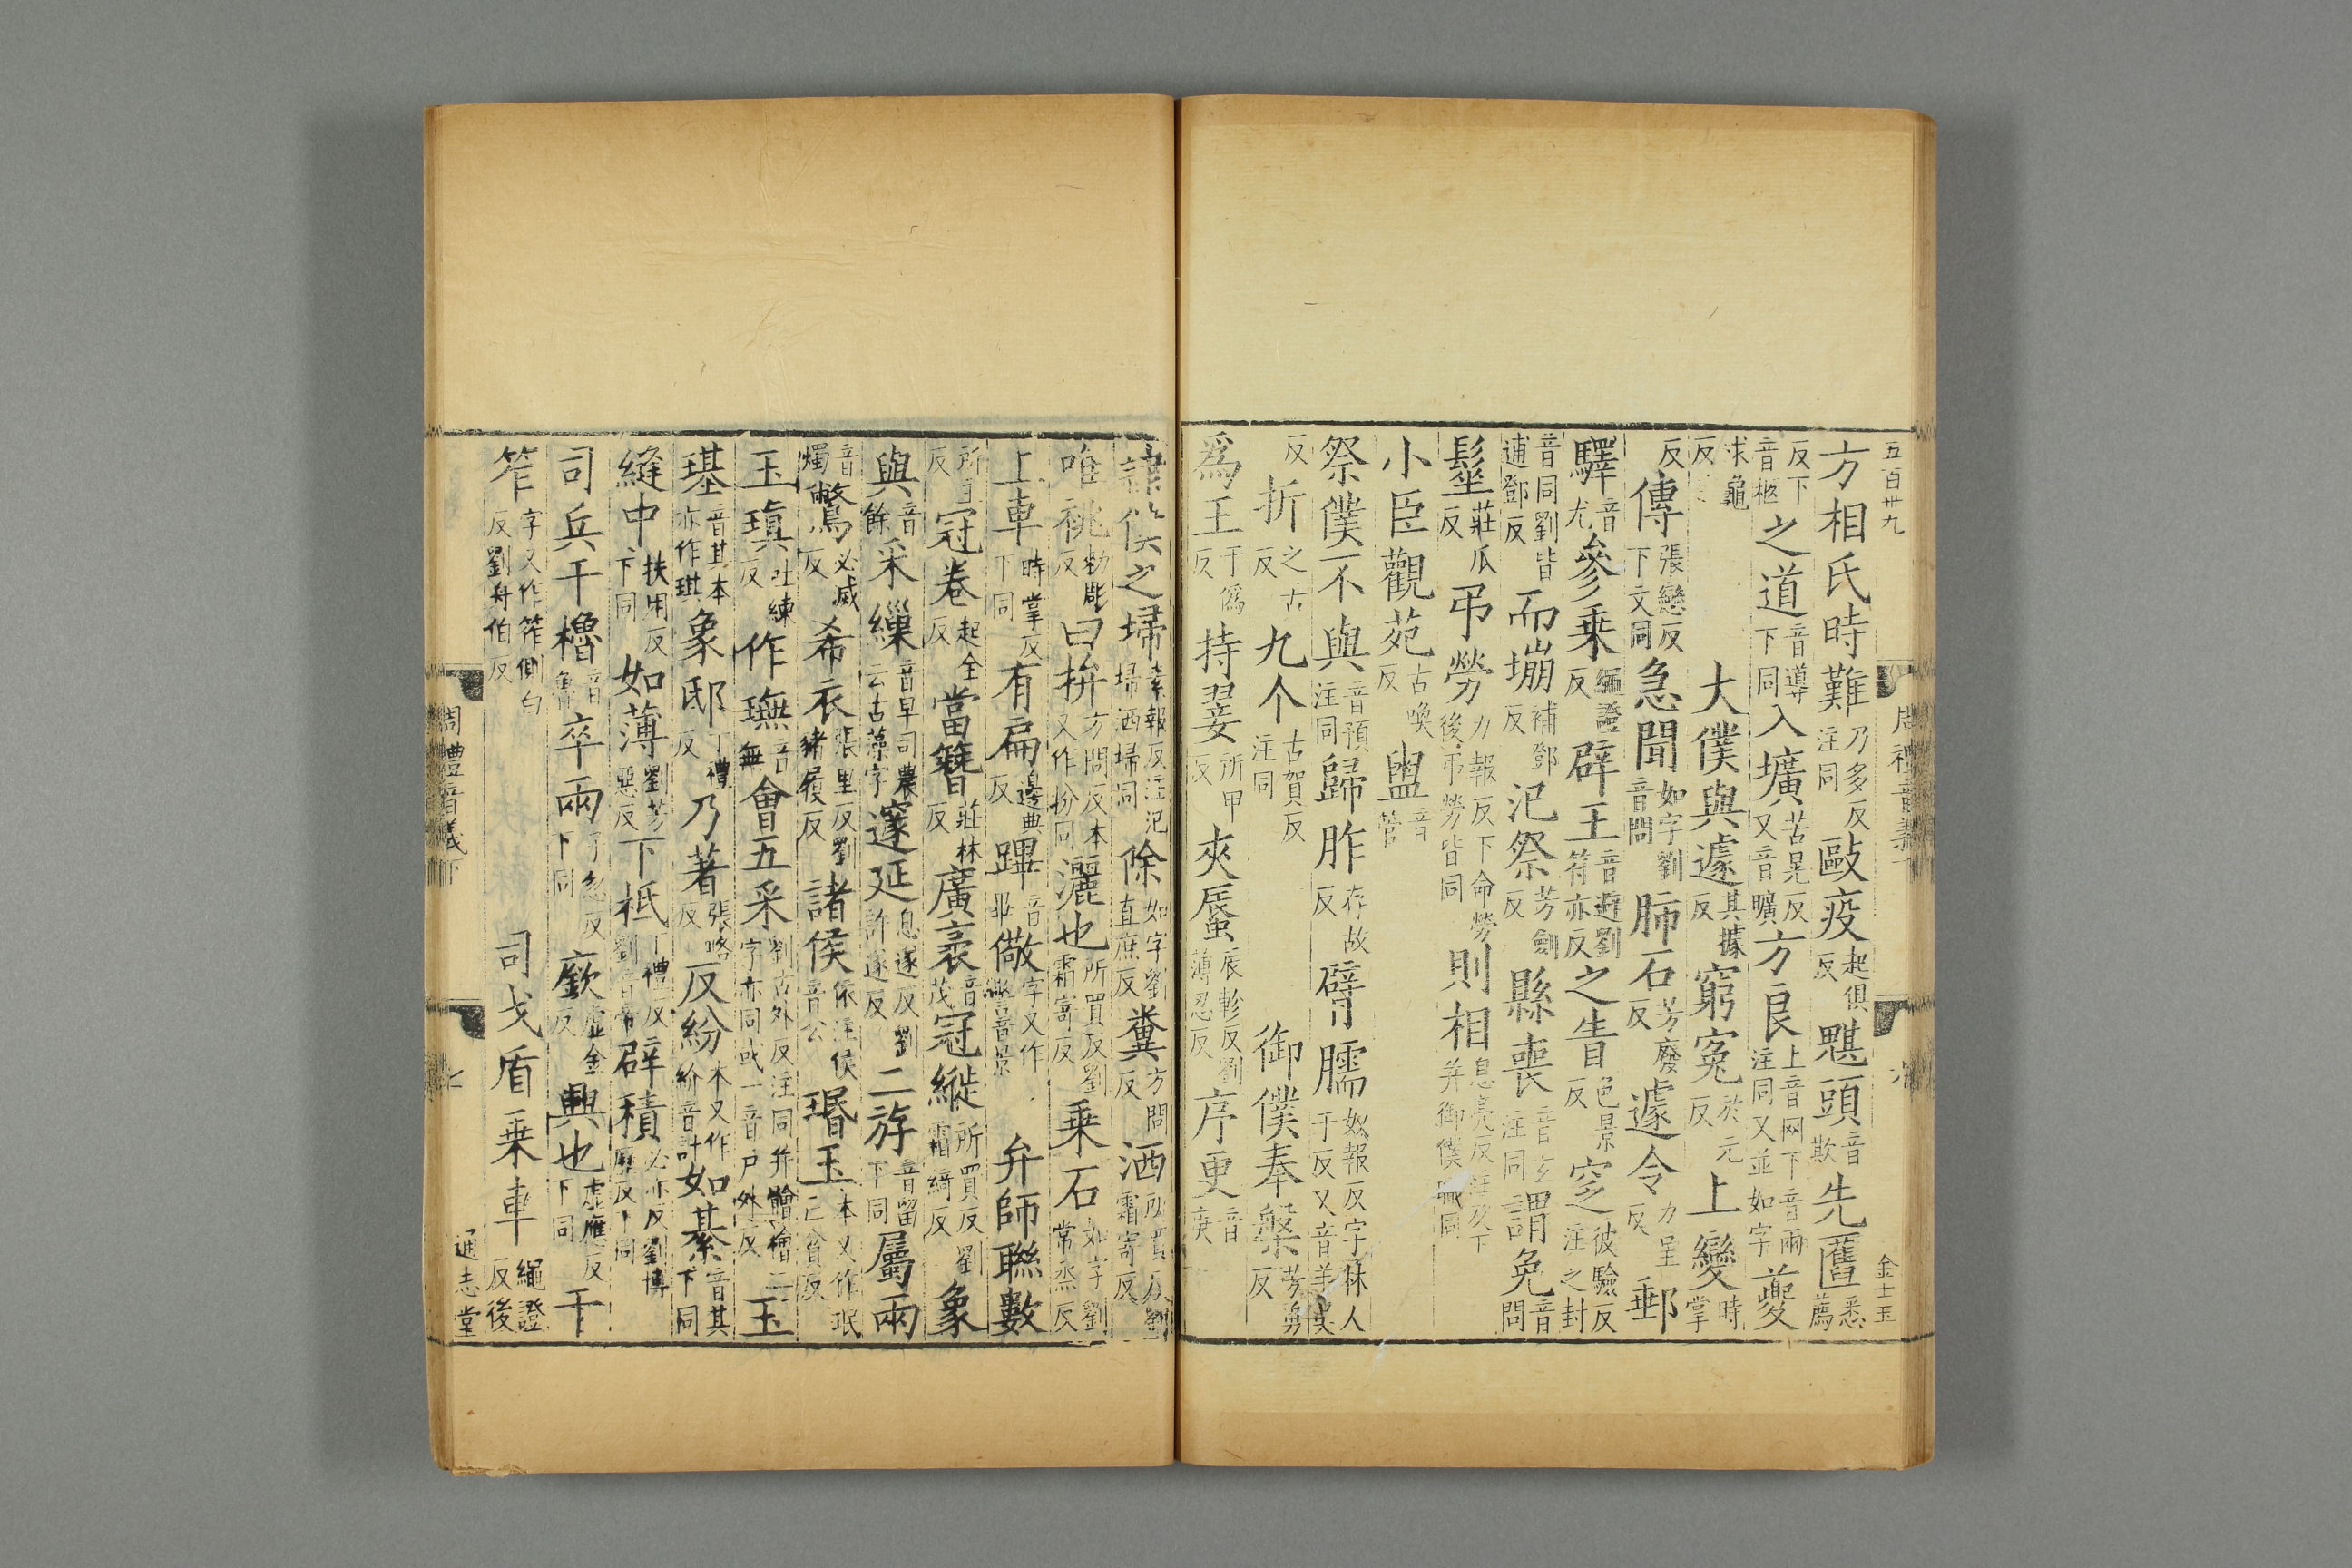 五百卅九
周禮音義下
金士玉
方相氏時難乃多反注同毆疫起俱反魌頭音欺先匶悉薦
反下音柩之道音導下同入壙苦晃反又音曠方良上音网下音兩注同又並如字夔
求龜反
大僕與遽其據反窮冤於元反上變時掌
反傳張戀反下文同急聞如字劉音問肺石芳廢反遽令力呈反郵
音尤驛參乗繩證反辟王音避劉符亦反之眚色景反窆彼驗反注之封
音同劉皆逋鄧反而堋補鄧反汜祭芳劒反縣喪音玄注同謂免音問
髽莊瓜反弔勞力報反下命勞後弔勞皆同則相息亮反注及下并御僕職同
小臣觀苑古喚反盥音管
祭僕不與音預注同歸胙存故反臂臑奴報反字林人于反又音羊
反折之舌反九个古賀反注同御僕奉槃芳勇反
爲王于僞反持翣所甲反夾蜃辰軫反劉薄忍反序更音庚
隷僕之埽素報反注汜埽洒埽同除如字劉直庶反糞方問反洒所買反劉霜寄反
唯祧勑彫反曰拚方問反本又作扮同灑也所買反劉霜寄反乗石如字劉常烝反
上車時掌反下同有扁邊典反蹕音畢儆字又作警音景弁師聯數
所主反冠卷起全反當簪莊林反廣袤音茂冠縰所買反劉霜綺反象
與音餘采繅音早司農云古藻字邃延息遂反劉許遂反二斿音留下同屬兩
音燭鷩必滅反希衣張里反劉豬履反諸侯依注侯音公瑉玉本又作珉亡貧反
玉瑱吐練反作璑音無會五采劉古外反注同并鱠檜二字亦同或一音戸外反玉
璂音其本亦作琪象邸丁禮反乃著張略反反紛本又作紒音計如綦音其下同
縫中扶用反下同如薄劉芳惡反下柢丁禮反劉音帝辟積必亦反劉博歷反下同
司兵干櫓音魯卒兩子忽反下同廞虛金反興也虛應反下同干
笮字又作筰側白反劉舟伯反司戈盾乗車繩證反後
周禮音義下
七
通志堂